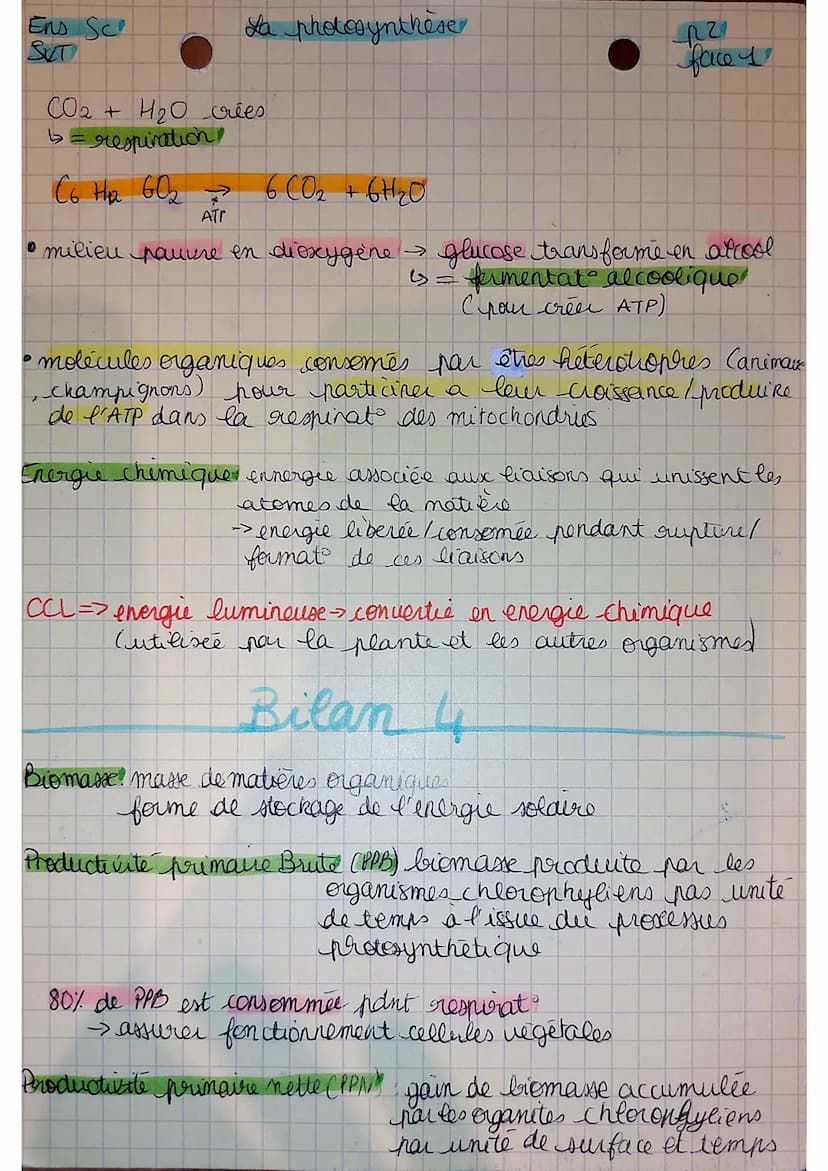 Ens Sc
La photosynthèse
p2
SVT
face 1
CO2 + H2O crées
↳ = respiration
C6 H12 6O2 → 6 CO2 + 6H2O
ATP
• milieu pauvre en dioxygène → glucose transformé en alcool
↳ = fermentat° alcoolique
(pour créer ATP)
• molécules organiques consomés par êtres hétérotrophes (animaux
, champignons) pour participer a leur croissance/produire
de l'ATP dans la respirat° des mitochondries
Energie chimique: ennergie associée aux liaisons qui unissent les
atomes de la matière
→ energie liberée/consomée pendant rupture/
format° de ces liaisons
CCL => energie lumineuse → convertie en energie chimique
(utilisée par la plante et les autres organismes)
Bilan 4
Biomasse: masse de matières organiques
forme de stockage de l'energie solaire
Productivité primaire Brute (PPB) biomasse produite par les
organismes chlorophyliens pas unité
de temps à l'issue du processus
photosynthétique
80% de PPB est consommée pdnt respirat°
→ assurer fonctionnement cellules végétales
Productivité primaire nette (PPN): gain de biomasse accumulée
par les organites chlorophyliens
par unité de surface et temps